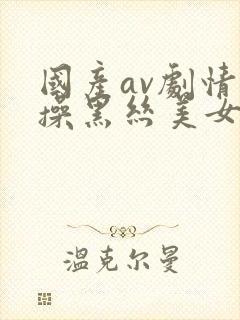 國產av劇情
操黑絲美女
溫克尔曼